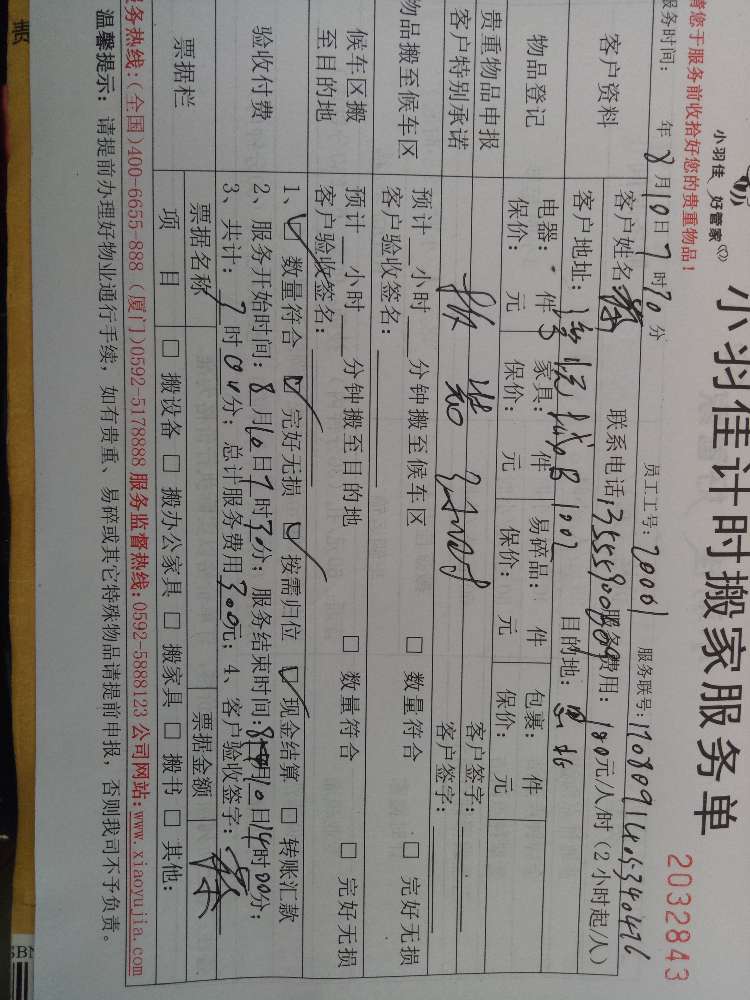 小羽佳计时搬家服务单
2032843
小羽佳 好管家
请您于服务前收拾好您的贵重物品！
员工工号：20001 服务联号：
服务时间： 年8月10日7时30分
客户资料
客户姓名： 联系电话： 服务费用：180元/人/时（2小时起/人）
客户地址： B1002 目的地：
物品登记
电器： 件 家具： 件 易碎品： 件 包裹： 件
保价： 元 保价： 元 保价： 元 保价： 元
贵重物品申报 客户签字：
客户特别承诺 客户签字：
物品搬至候车区
预计__小时__分钟搬至候车区 □ 数量符合 □ 完好无损
客户验收签名：
候车区搬至目的地
预计__小时__分钟搬至目的地 □ 数量符合 □ 完好无损
客户验收签名：
验收付费
1、☑ 数量符合 ☑ 完好无损 ☑ 按需归位 ☑ 现金结算 □ 转账汇款
2、服务开始时间：8月10日7时30分；服务结束时间：8月10日14时00分；
3、共计： 时 分；总计服务费用300元；4、客户验收签字：
票据栏
票据名称 票据金额
项 目 □ 搬设备 □ 搬办公家具 □ 搬家具 □ 搬书 □ 其他：
服务热线：(全国)400-6655-888 (厦门)0592-5178888 服务监督热线：0592-5888123 公司网站：www.xiaoyujia.com
温馨提示：请提前办理好物业通行手续，如有贵重、易碎或其它特殊物品请提前申报，否则我司不予负责。
责
SBN